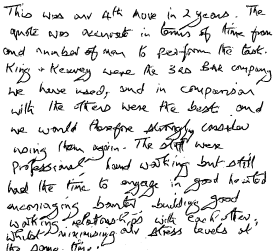 This was our 4th move in 2 years. The
quote was accurate in terms of time from
and number of men to perform the task.
King & Keavey were the 3rd BAR company
we have used, and in comparison
with the others were the best and
we would therefore strongly consider
using them again. The staff were
Professional hard working but still
had the time to engage in good hearted
encouraging banter building good
working relationships with each other,
whilst minimising our stress levels at
the same time.